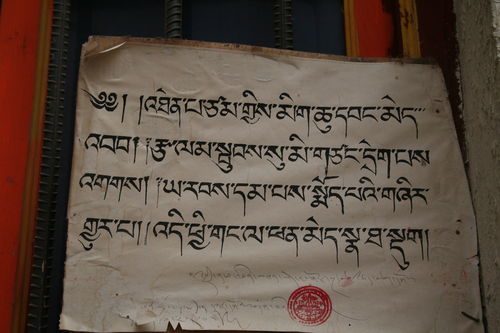 ༄༅། །འཐེན་པ་ཙམ་གྱིས་མིག་ཆུ་དབང་མེད་
འབབ། །རྩ་ལམ་སྦུབས་སུ་མི་གཙང་དྲེག་པས
འགགས། །ཡ་རབས་དམ་པས་སྨོད་པའི་གཞིར་
གྱུར་པ། །འདི་ཕྱི་གང་ལ་ཕན་མེད་སྣ་ཐ་སྡུག།